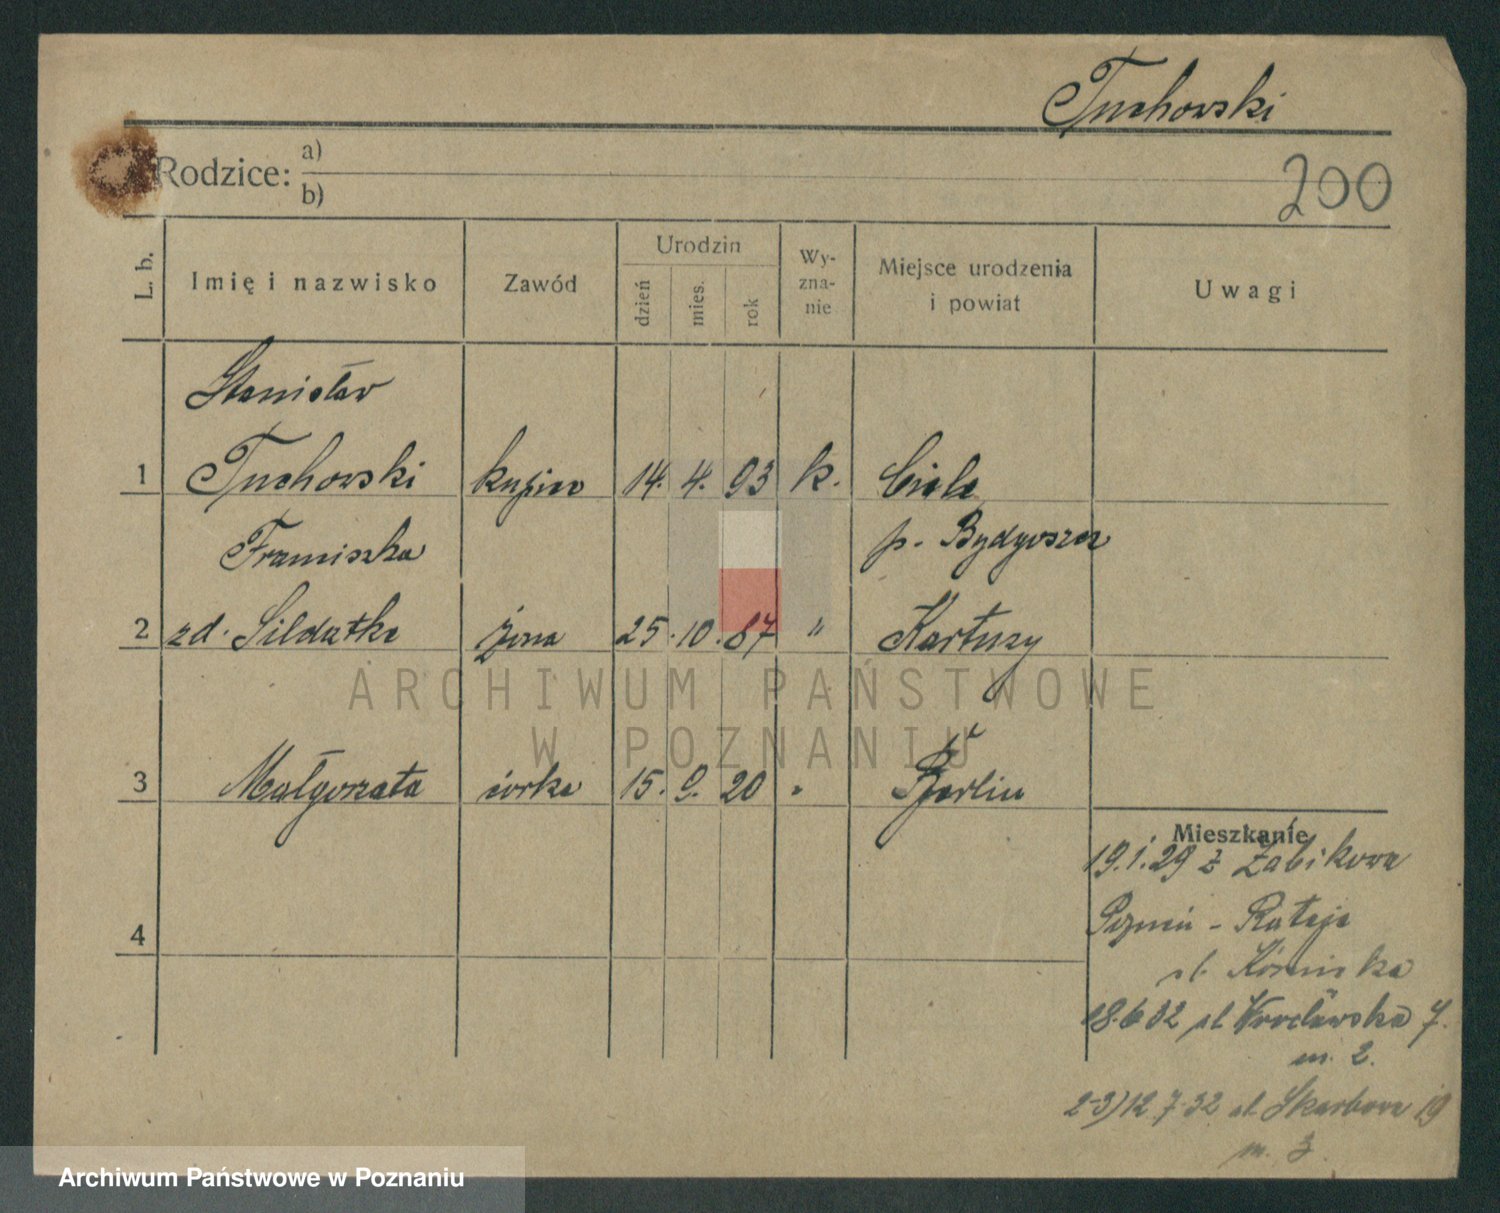 Tuchowski
Rodzice: a)
b)
200
L. b.
Imię i nazwisko
Zawód
Urodzin
dzień
mies.
rok
Wy-
zna-
nie
Miejsce urodzenia
i powiat
Uwagi
Stanisław
1 Tuchowski kupiec 14. 4. 93 k. Ciele
Franciszka p. Bydgoszcz
2 zd. Sildatke żona 25. 10. 87 " Kartuzy
3 Małgorzata córka 15. 9. 20 " Berlin
4
Mieszkanie
19.1.29 z Żabikowa
Poznań - Rataje
ul. Kórnicka
18.6 32 ul Wrocławska 7.
m. 2.
2-3) 12 7.32 ul. Skarbowa 19
m. 3.
ARCHIWUM PAŃSTWOWE
W POZNANIU
Archiwum Państwowe w Poznaniu